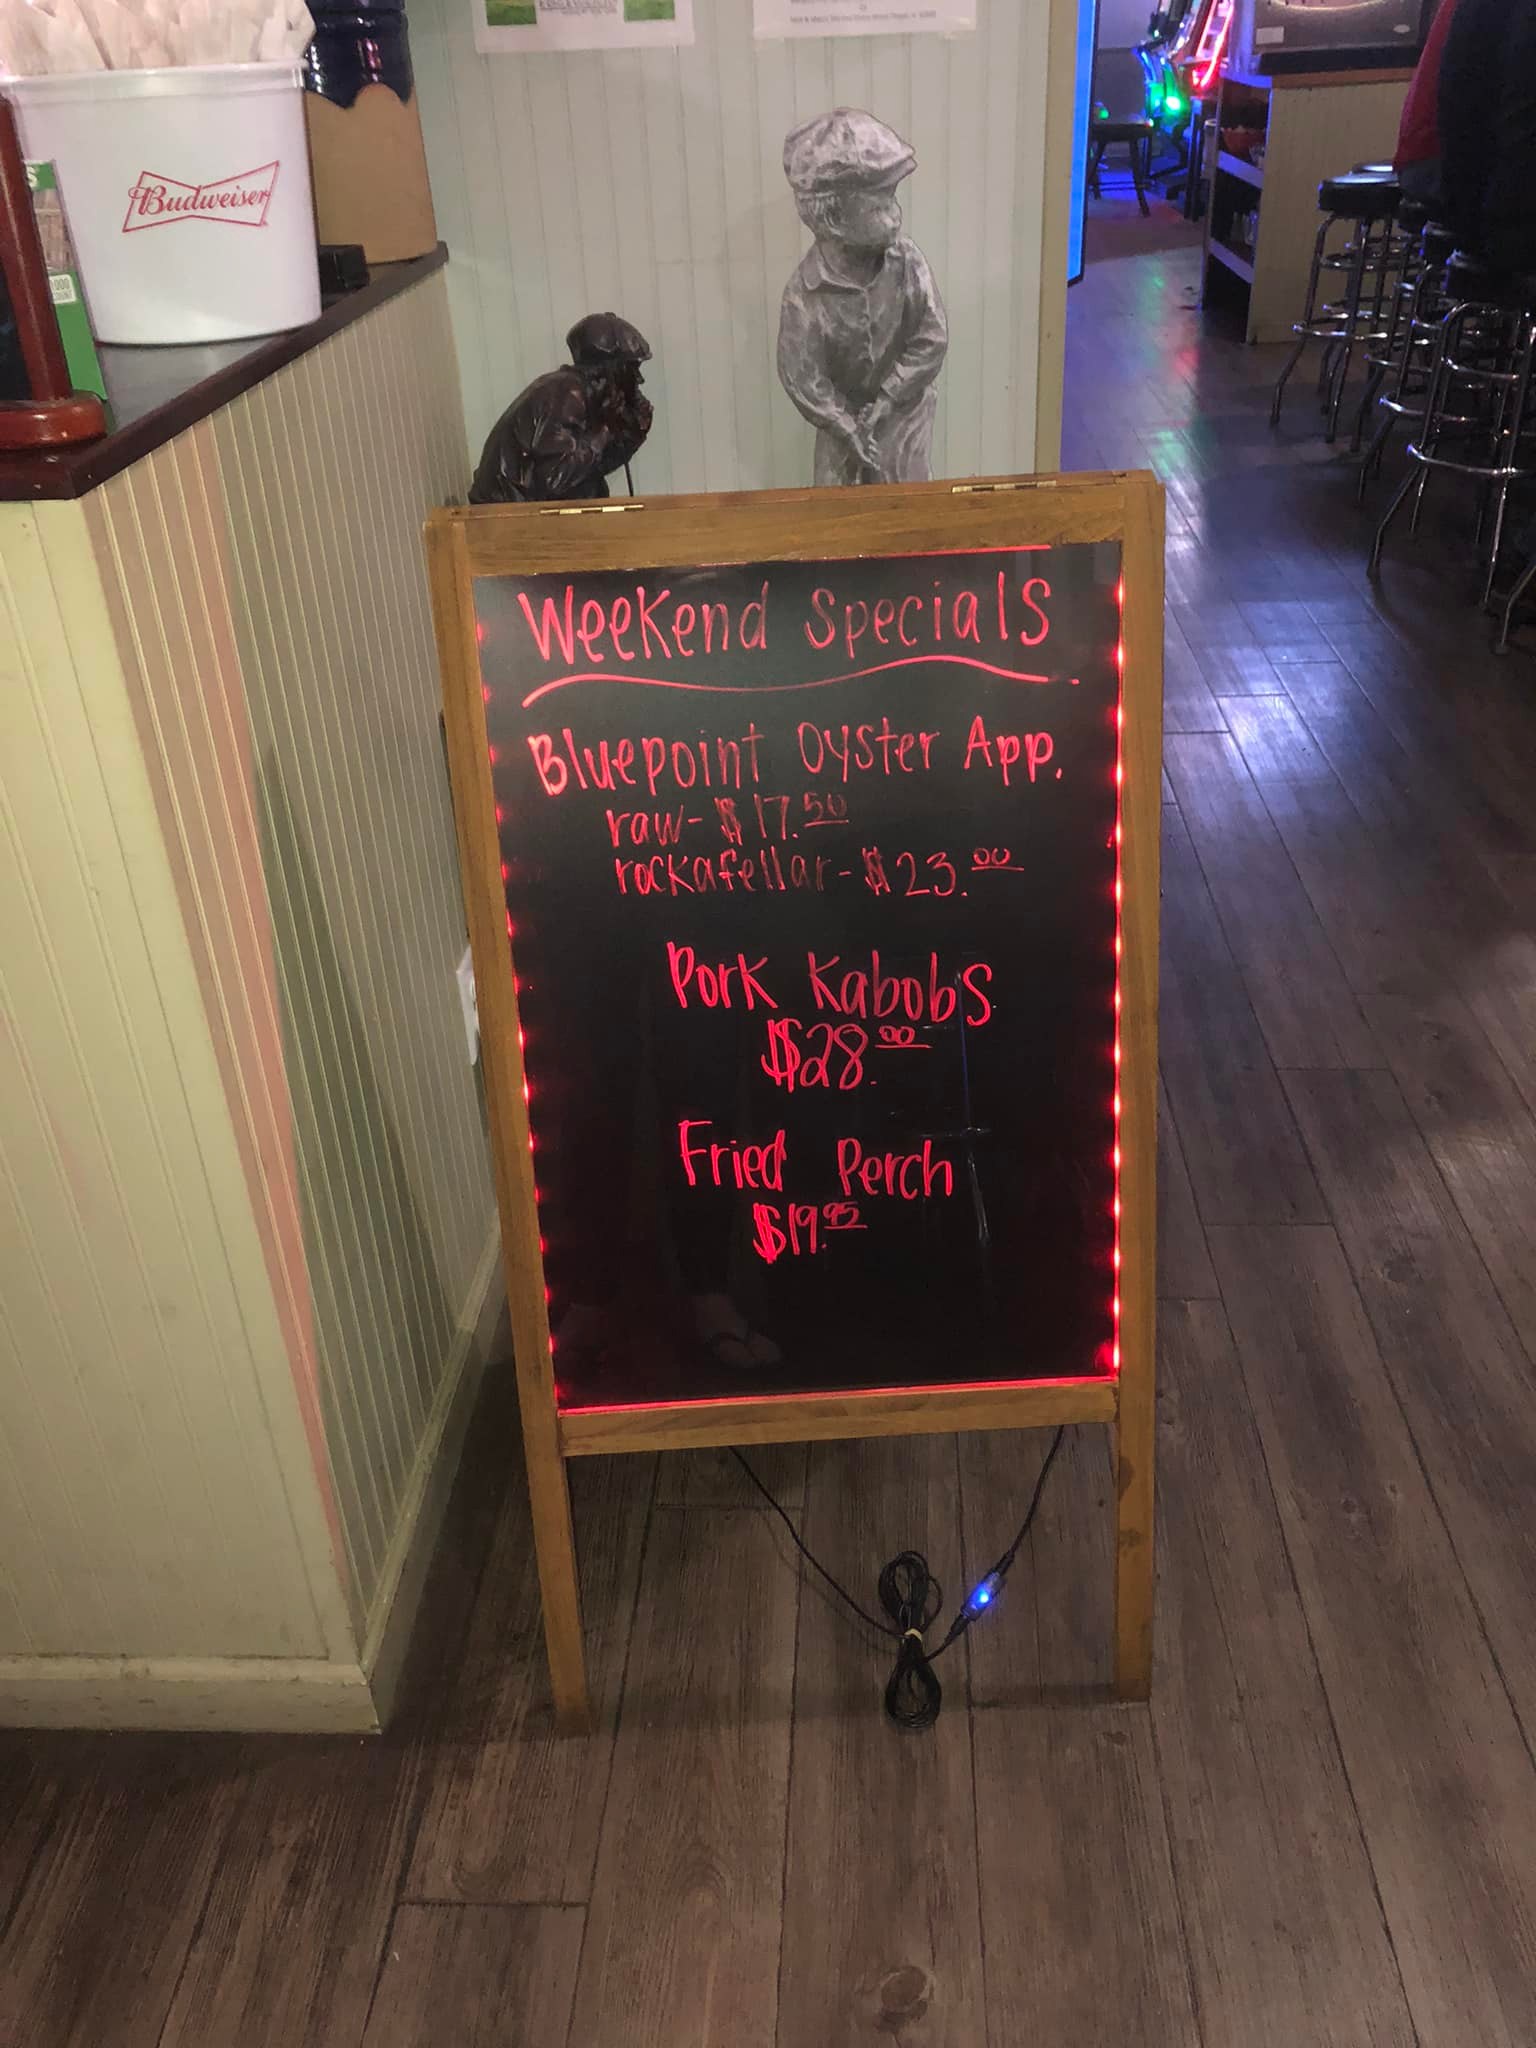 Budweiser
Weekend Specials
Bluepoint Oyster App.
raw-$17.50
rockafellar-$23.00
Pork Kabobs
$28.00
Fried Perch
$19.95